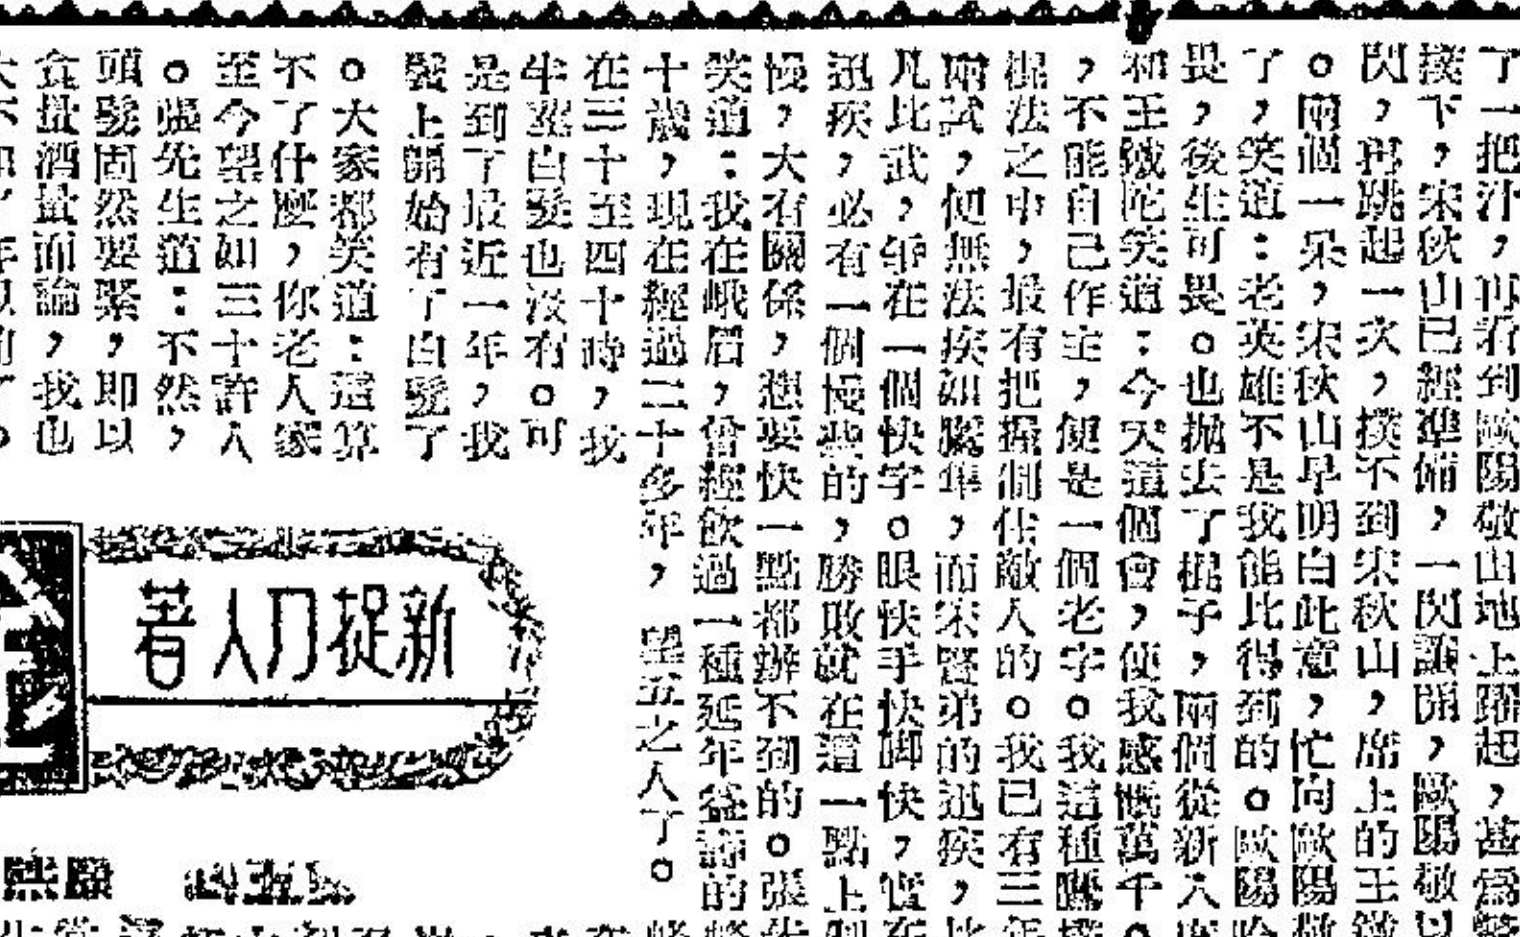 了一把汗，再看到歐陽敬山地上躍起，甚爲
撲下，宋秋山已經準備，一閃讓開，歐陽敬以
閃，再跳起一次，撲不到宋秋山，席上的王鐵
。兩個一呆，宋秋山早明白此意，忙向歐陽敬
了，笑道：老英雄不是我能比得到的。歐陽哈
畏，後生可畏。也拋去了棍子，兩個從新入席
和王鐵陀笑道：今天這個會，使我感慨萬千。
，不能自己作主，便是一個老字。我這種鷹
棍法之中，最有把握制住敵人的。我已有三年
兩試，便無法疾如騰隼，而宋賢弟的迅疾，比
凡比武，年在一個快字。眼快手快脚快，實在
迅疾，必有一個慢些的，勝敗就在這一點上
慢，大有關係，想要快一點都辦不到的。張先
笑道：我在峨眉，曾經飲過一種延年益壽的
十歲，現在經過二十多年，望五之人了。
在三十至四十時，我
牛莖白髮也沒有。可
是到了最近一年，我
髮上開始有了白髮了
。大家都笑道：這算
不了什麼，你老人家
至今望之如三十許人
。張先生道：不然，
頭髮固然要緊，即以
食量酒量而論，我也
新捉刀人著